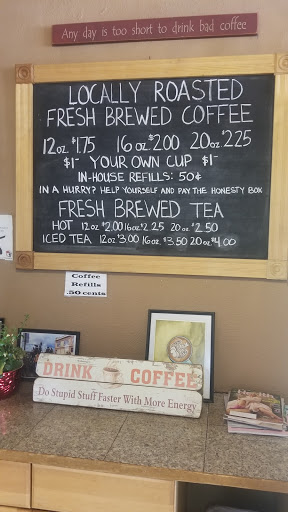 Any day is too short to drink bad coffee
LOCALLY ROASTED
FRESH BREWED COFFEE
12oz $1.75 16oz $2.00 20oz $2.25
$1- YOUR OWN CUP $1-
IN-HOUSE REFILLS: 50¢
IN A HURRY? HELP YOURSELF AND PAY THE HONESTY BOX
FRESH BREWED TEA
HOT 12oz $2.00 16oz $2.25 20oz $2.50
ICED TEA 12oz $3.00 16oz $3.50 20oz $4.00
Coffee
Refills
.50 cents
DRINK COFFEE
Do Stupid Stuff Faster With More Energy